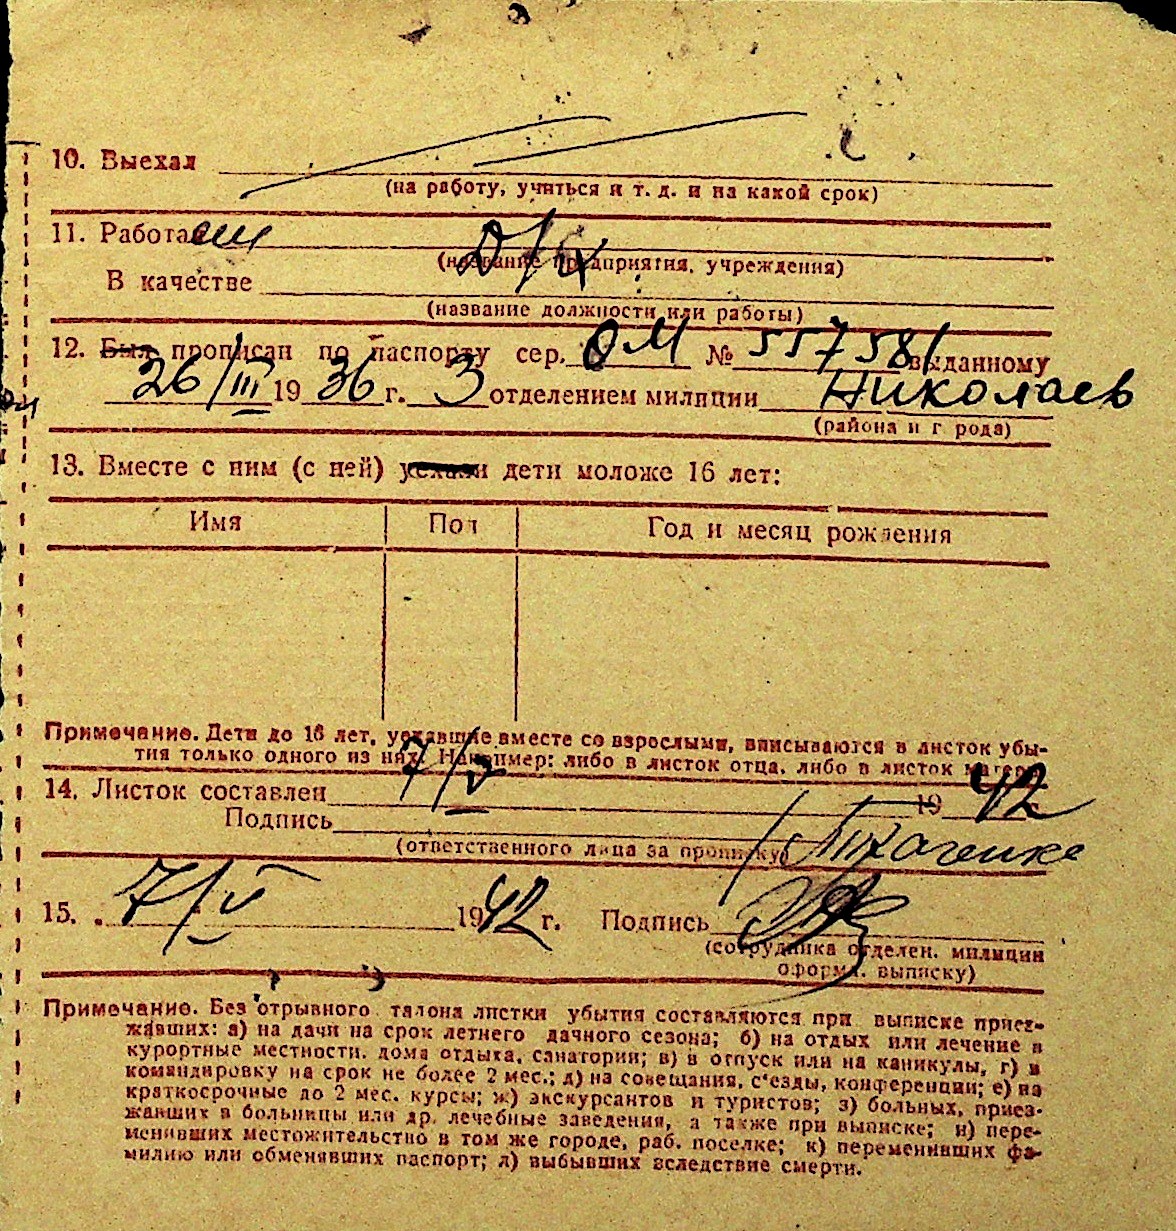 10. Выехал
(на работу, учиться и т. д. и на какой срок)
11. Работа
Д/х
(название предприятия, учреждения)
В качестве
(название должности или работы)
12. Был прописан по паспорту сер. ОМ № 557581 выданному
26/III 1936 г. 3 отделением милиции Николаев
(района и г рода)
13. Вместе с ним (с ней) уехали дети моложе 16 лет:
Имя Пол Год и месяц рождения
Примечание. Дети до 16 лет, уехавшие вместе со взрослыми, вписываются в листок убы-
тия только одного из них. Например: либо в листок отца, либо в листок матери.
14. Листок составлен 7/V 1942 г.
Подпись Ткаченко
(ответственного лица за прописку)
15. 7/V 1942 г. Подпись
(сотрудника отделен. милиции
оформ. выписку)
Примечание. Без отрывного талона листки убытия составляются при выписке приез-
жавших: а) на дачи на срок летнего дачного сезона; б) на отдых или лечение в
курортные местности, дома отдыха, санатории; в) в отпуск или на каникулы, г) в
командировку на срок не более 2 мес.; д) на совещания, с'езды, конференции; е) на
краткосрочные до 2 мес. курсы; ж) экскурсантов и туристов; з) больных, приез-
жавших в больницы или др. лечебные заведения, а также при выписке; и) пере-
менивших местожительство в том же городе, раб. поселке; к) переменивших фа-
милию или обменявших паспорт; л) выбывших вследствие смерти.